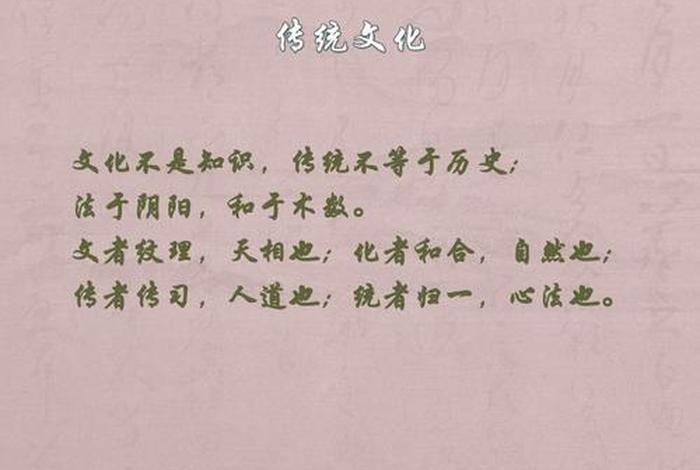 传统文化
文化不是知识，传统不等于历史；
法于阴阳，和于术数。
文者纹理，天相也；化者和合，自然也；
传者传习，人道也；统者归一，心法也。